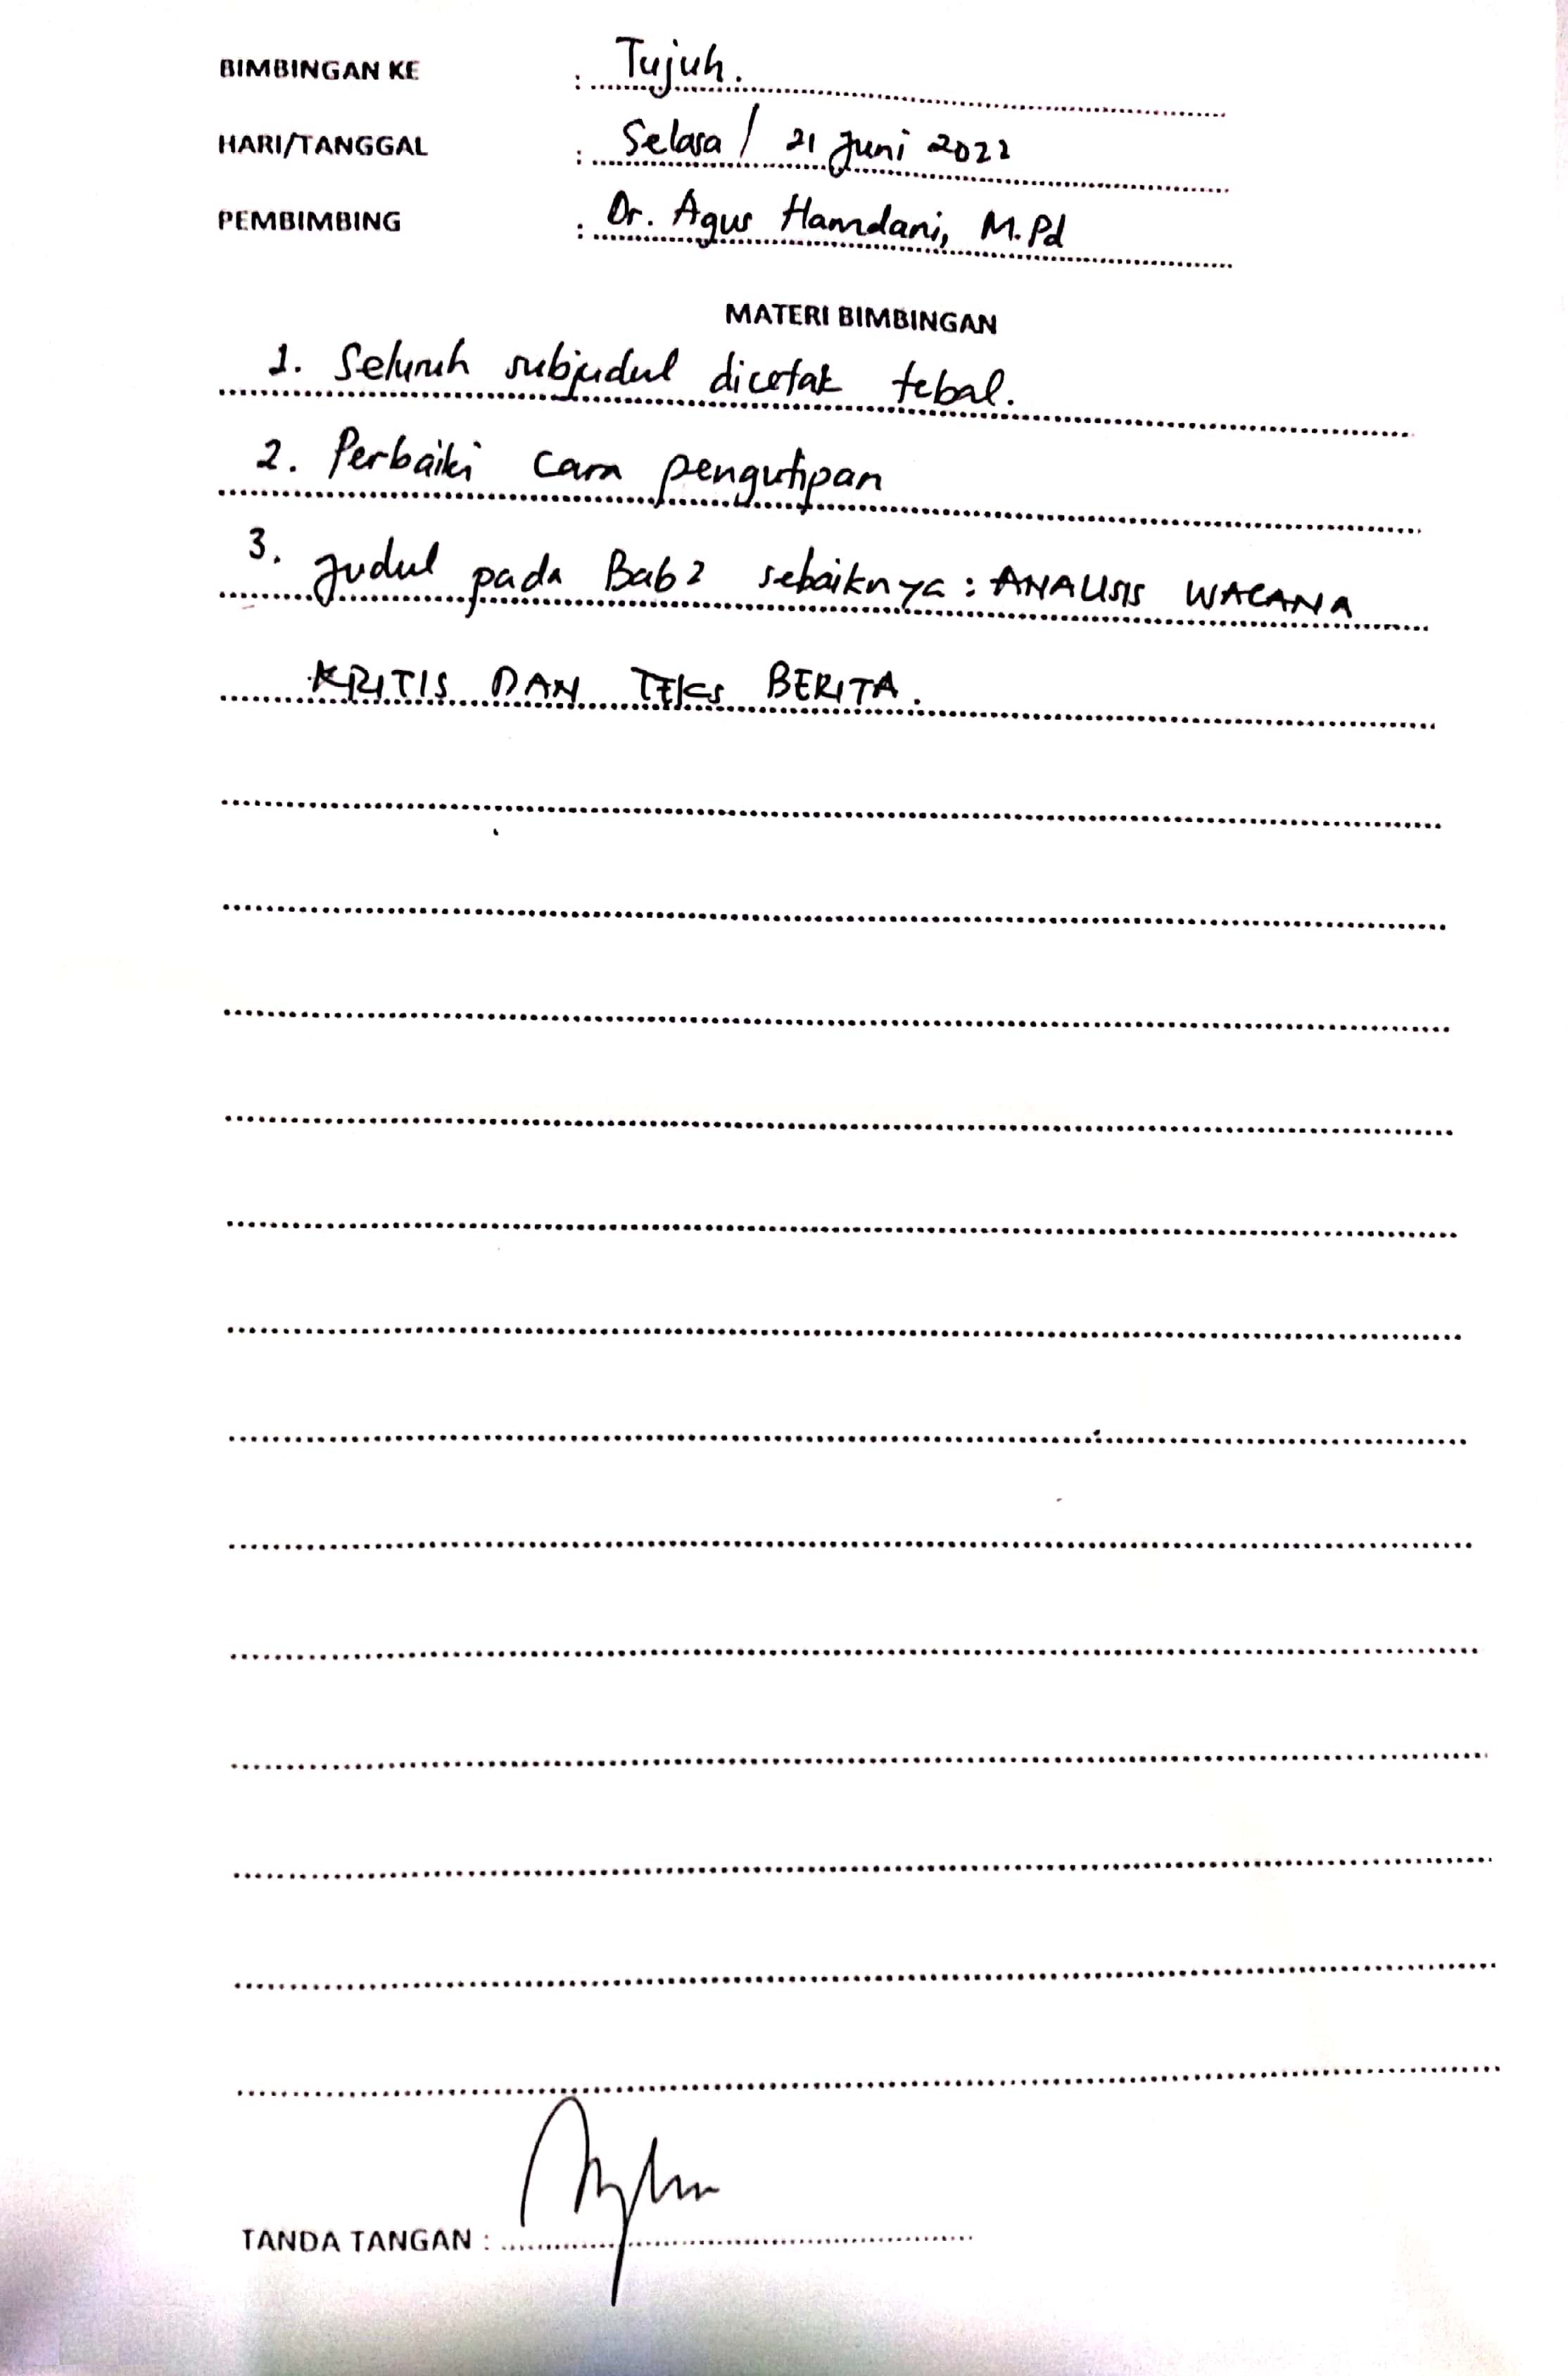 BIMBINGAN KE : Tujuh.
HARI/TANGGAL : Selasa / 21 Juni 2022
PEMBIMBING : Dr. Agus Hamdani, M.Pd
MATERI BIMBINGAN
1. Seluruh subjudul dicetak tebal.
2. Perbaiki cara pengutipan
3. Judul pada Bab 2 sebaiknya : ANALISIS WACANA
KRITIS DAN TEKS BERITA.
TANDA TANGAN :